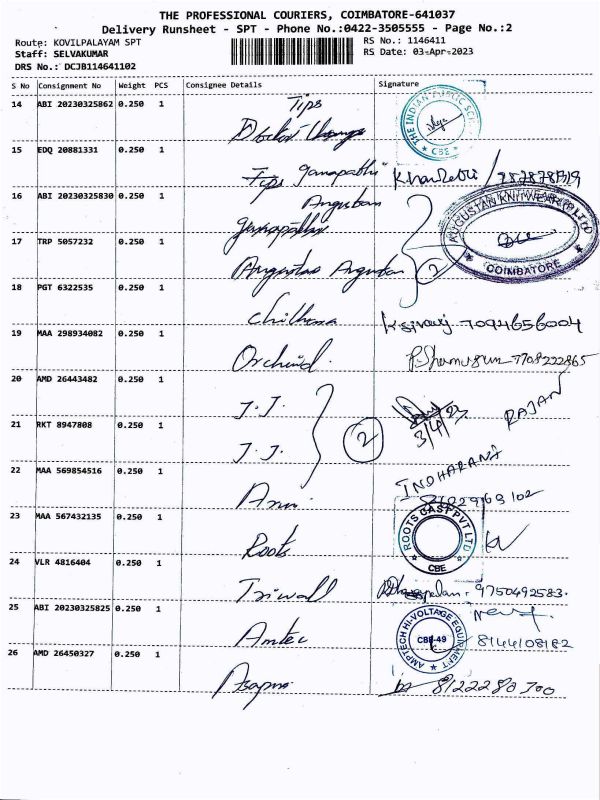 THE PROFESSIONAL COURIERS, COIMBATORE-641037
Delivery Runsheet - SPT - Phone No.:0422-3505555 - Page No.:2
Route: KOVILPALAYAM SPT RS No.: 1146411
Staff: SELVAKUMAR RS Date: 03-Apr-2023
DRS No.: DCJB114641102
S No Consignment No Weight PCS Consignee Details Signature
14 ABI 20230325862 0.250 1 Tips
THE INDIAN PUBLIC CBE
15 EDQ 20881331 0.250 1
Tips Ganapathi
16 ABI 20230325830 0.250 1 Anguban
Ganapathi AUGUSTAN KNITWEAR P LTD COIMBATORE
17 TRP 5057232 0.250 1
Anguban 2
18 PGT 6322535 0.250 1
Chithra K. Sivaraj 7094656004
19 MAA 298934082 0.250 1
Orchid P. Shanmugam 7708222865
20 AMD 26443482 0.250 1
J.J. 3/4/23 RAJAN
21 RKT 8947808 0.250 1 2
J.J.
22 MAA 569854516 0.250 1 INDHARANI
23 MAA 567432135 0.250 1 ROOTS CAST PVT LTD CBE
Roots
24 VLR 4816404 0.250 1
Triwall 9750492583
25 ABI 20230325825 0.250 1
Amtec AMPTECH HI-VOLTAGE EQUIPMENT CBE-49 8144108182
26 AMD 26450327 0.250 1
8122280300